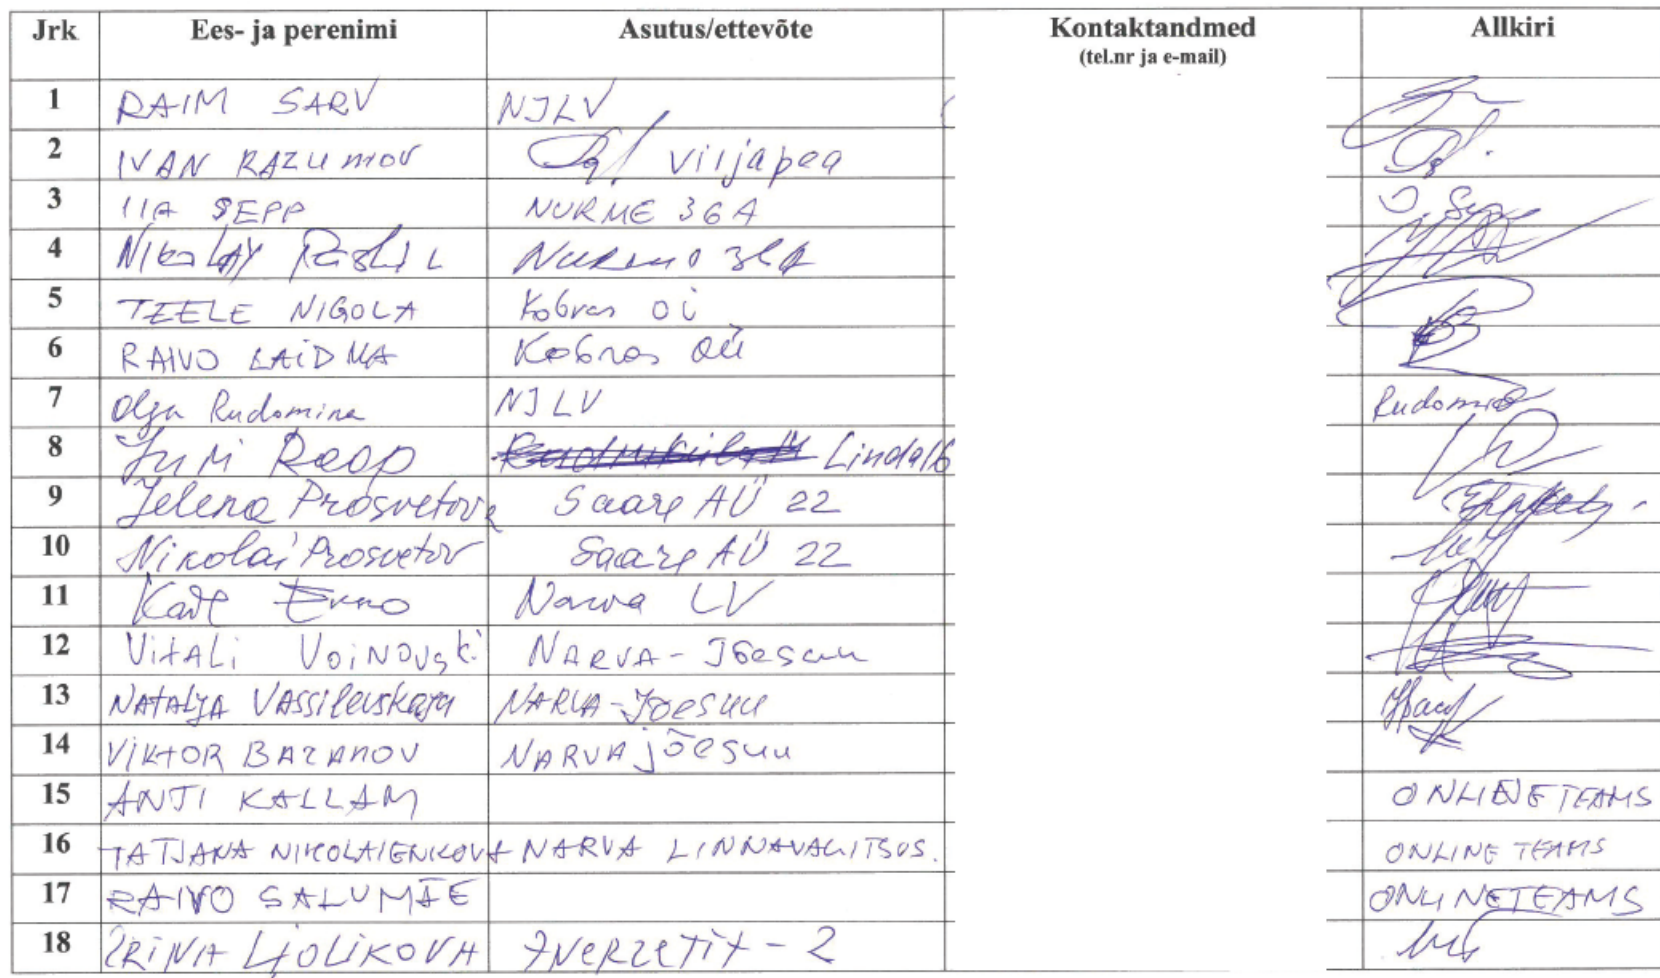 Jrk Ees- ja perenimi Asutus/ettevõte Kontaktandmed Allkiri
(tel.nr ja e-mail)
1 RAIM SARV NJLV
2 IVAN RAZUMOV Viljapea
3 IIA SEPP NURME 36A
4 NIKOLAY
5 TEELE NIGOLA Kobras OÜ
6 RAIVO LAIDMA Kobras OÜ
7 Olga Rudomina NJLV Rudomina
8 Juri Roop Linda 16
9 Jelena Prosvetova Saare AÜ 22
10 Nikolai Prosvetov Saare AÜ 22
11 Narva LV
12 VITALI VOINOVSKI NARVA-Jõesuu
13 NATALJA VASSILEVSKAJA NARVA-Jõesuu
14 VIKTOR BAZANOV NARVA jõesuu
15 ANTI KALLAM ONLINE TEAMS
16 TATJANA NIKOLAIENKOVA NARVA LINNAVALITSUS. ONLINE TEAMS
17 RAIVO SALUMÄE ONLINE TEAMS
18 IRINA LJOLIKOVA - 2